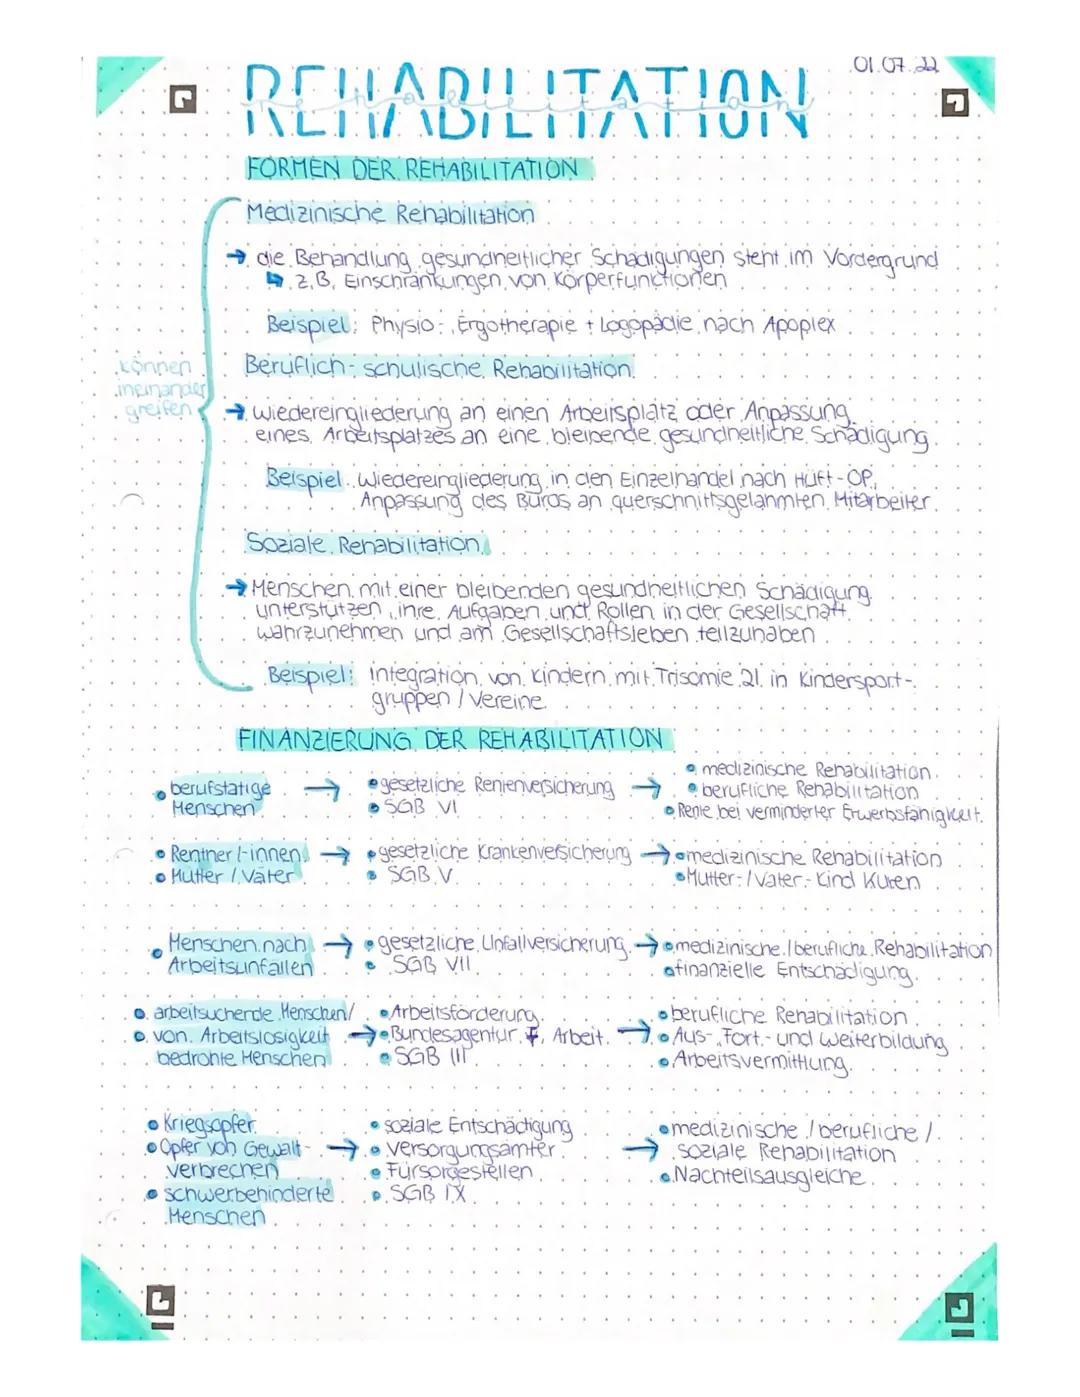 01.07.22
REHABILITATION
rehabilitation
FORMEN DER REHABILITATION
Medizinische Rehabilitation
→ die Behandlung gesundheitlicher Schädigungen steht im Vordergrund
↳ z.B. Einschränkungen von Körperfunctionen
Beispiel: Physio-, Ergotherapie + Logopädie nach Apoplex
können
ineinander
greifen
Beruflich-schulische Rehabilitation
→ Wiedereingliederung an einen Arbeitsplatz oder Anpassung
eines Arbeitsplatzes an eine bleibende gesundheitliche Schädigung
Beispiel: Wiedereingliederung in den Einzelhandel nach Hüft-OP,
Anpassung des Büros an querschnittsgelähmten Mitarbeiter
Soziale Rehabilitation
→ Menschen mit einer bleibenden gesundheitlichen Schädigung
unterstützen, ihre Aufgaben und Rollen in der Gesellschaft
wahrzunehmen und am Gesellschaftsleben teilzuhaben
Beispiel: Integration von Kindern mit Trisomie 21 in Kindersport-
gruppen / Vereine
FINANZIERUNG DER REHABILITATION
• berufstätige
Menschen
→ • gesetzliche Rentenversicherung
• SGB VI
→ • medizinische Rehabilitation
• berufliche Rehabilitation
• Rente bei verminderter Erwerbsfähigkeit
• Rentner/-innen
• Mütter / Väter
→ • gesetzliche Krankenversicherung
• SGB V
→ • medizinische Rehabilitation
• Mutter-/Vater-Kind Kuren
• Menschen nach
Arbeitsunfällen
→ • gesetzliche Unfallversicherung
• SGB VII
→ • medizinische / berufliche Rehabilitation
• finanzielle Entschädigung
• arbeitsuchende Menschen/
• von Arbeitslosigkeit
bedrohte Menschen
→ • Arbeitsförderung
• Bundesagentur f. Arbeit
• SGB III
→ • berufliche Rehabilitation
• Aus-, Fort- und Weiterbildung
• Arbeitsvermittlung
• Kriegsopfer
• Opfer von Gewalt-
verbrechen
• schwerbehinderte
Menschen
→ • soziale Entschädigung
• Versorgungsämter
• Fürsorgestellen
• SGB IX
→ • medizinische / berufliche /
soziale Rehabilitation
• Nachteilsausgleiche